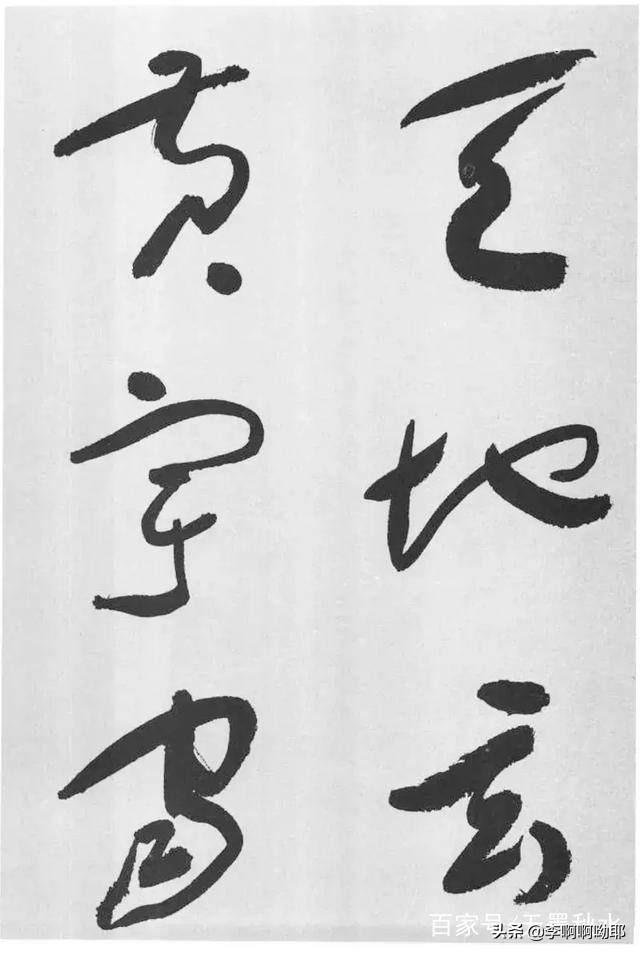 天地玄
黄宇宙
百家号/玉墨秋水
头条 @李啊啊呦耶